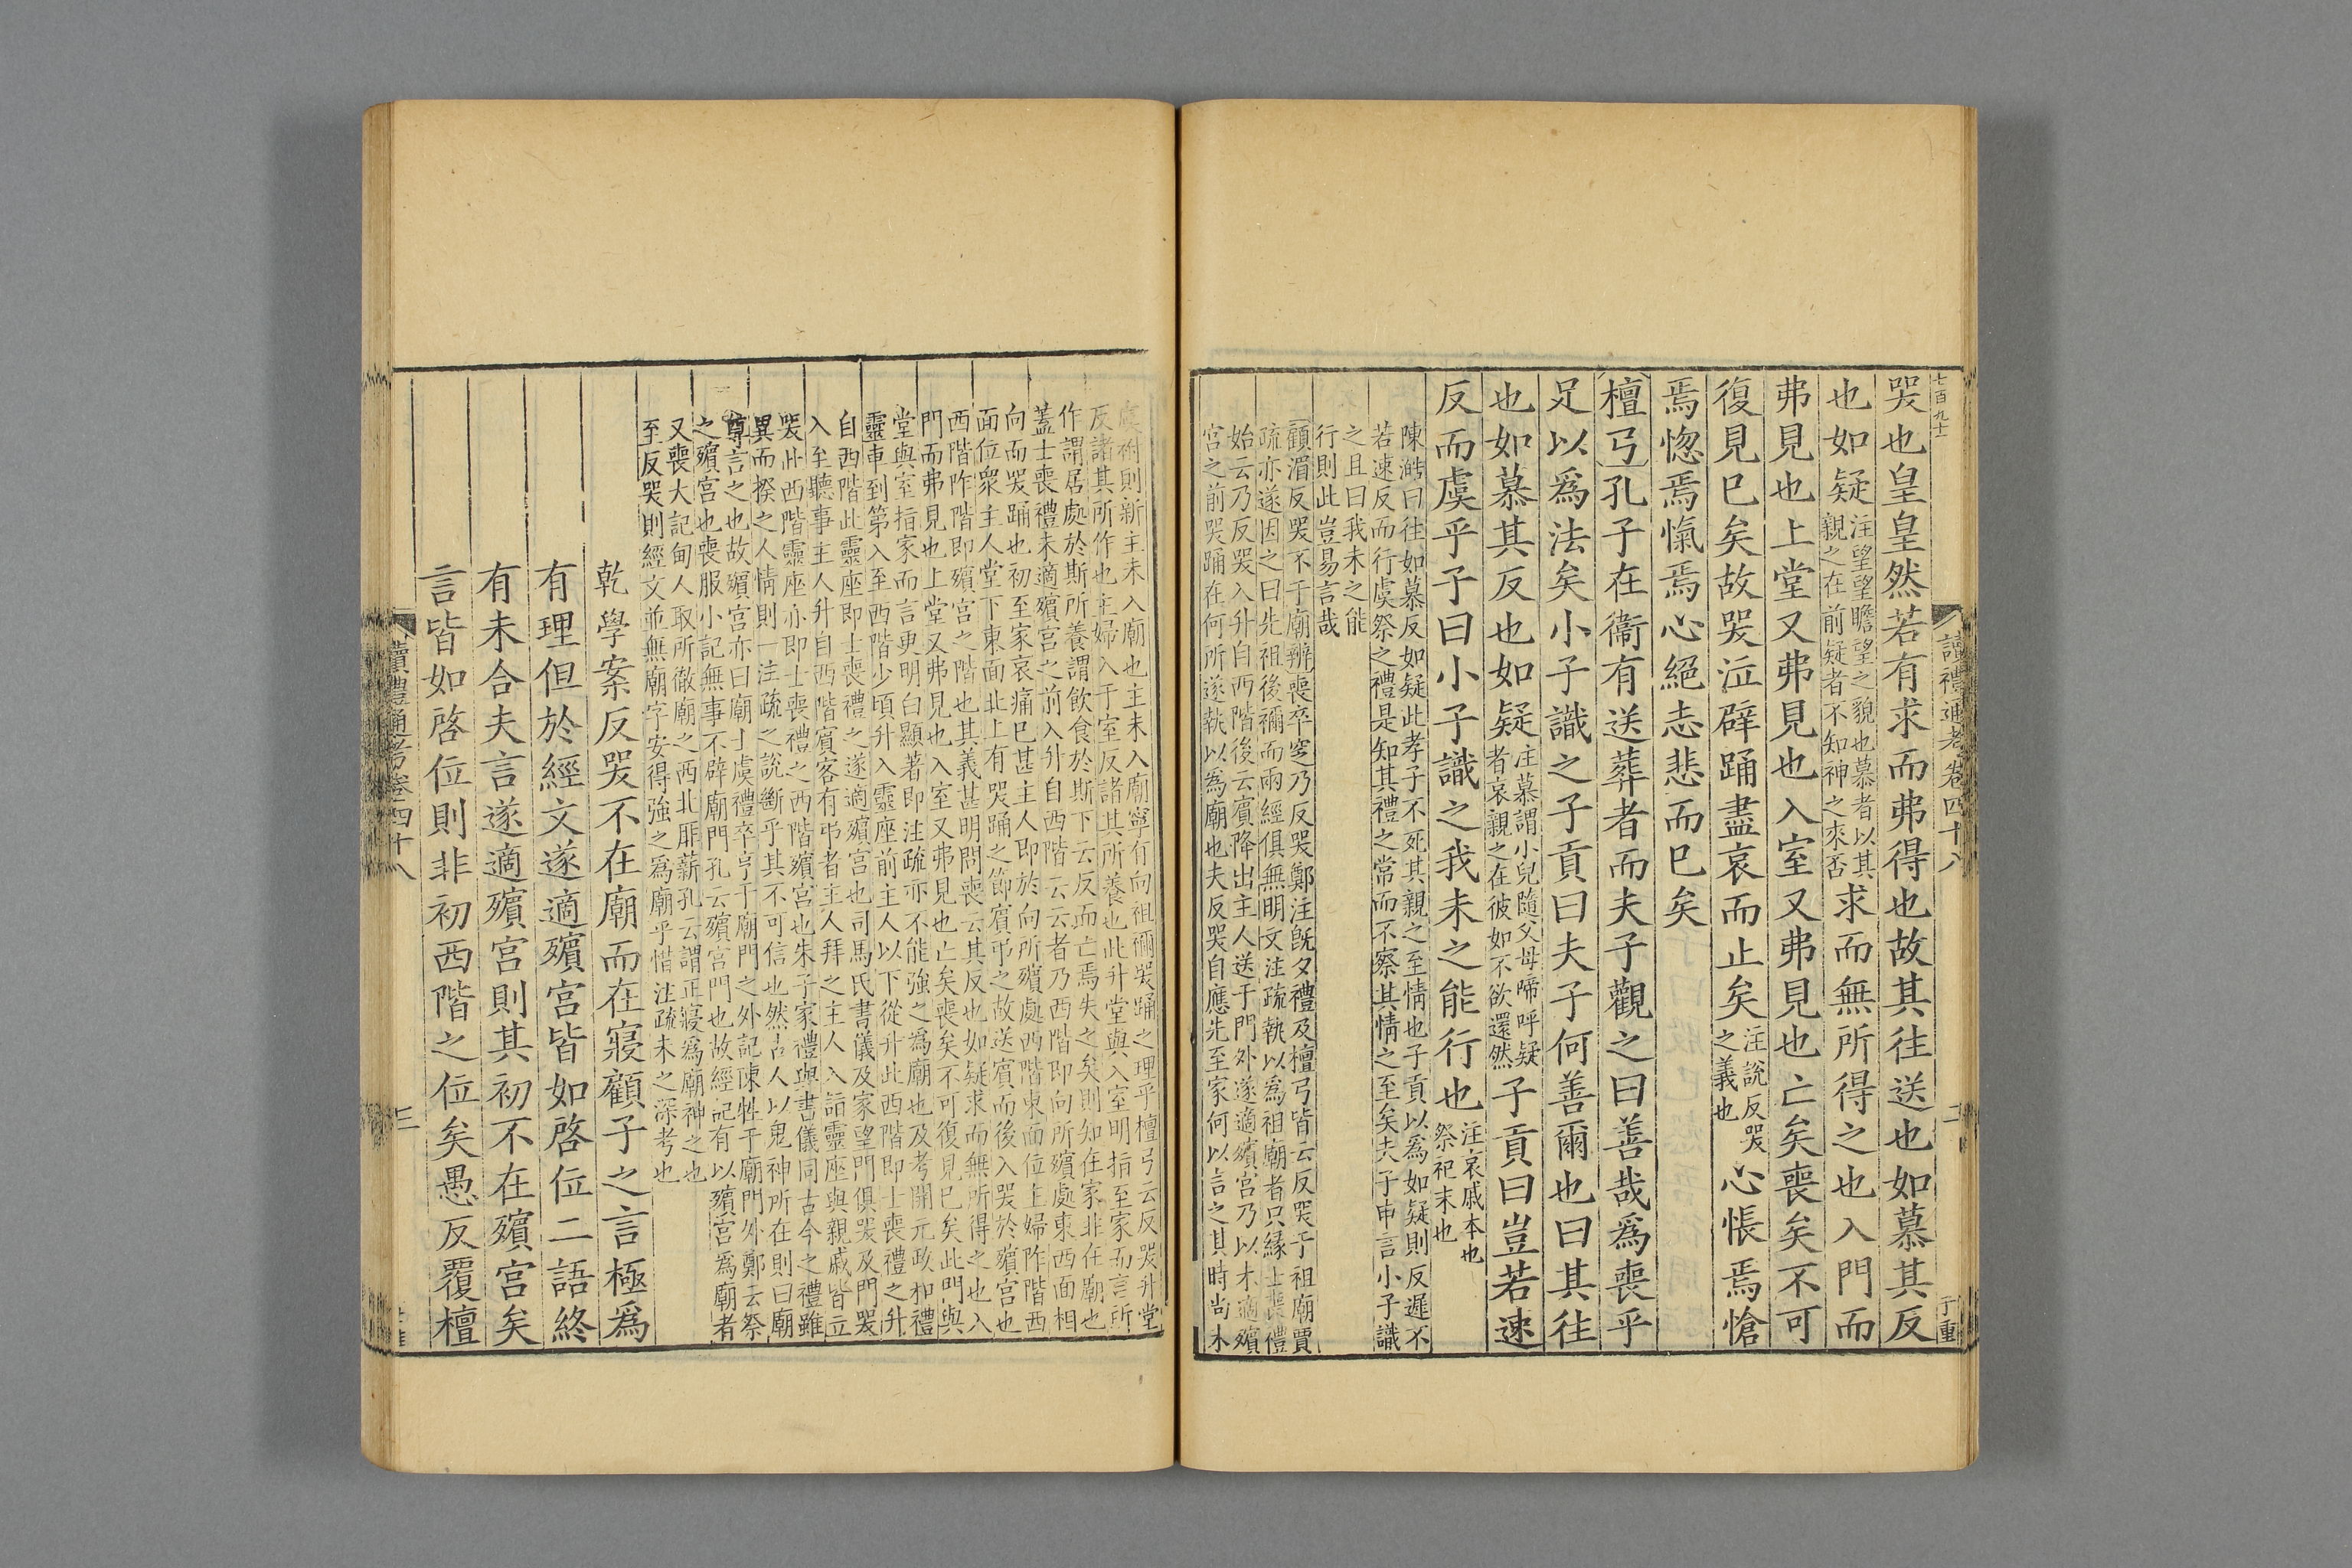 七百九十二
讀禮通考卷四十八
二
于重
哭也皇皇然若有求而弗得也故其往送也如慕其反
也如疑注望望瞻望之貌也慕者以其
親之在前疑者不知神之來否求而無所得之也入門而
弗見也上堂又弗見也入室又弗見也亡矣喪矣不可
復見已矣故哭泣辟踊盡哀而止矣注說反哭
之義也心悵焉愴
焉惚焉愾焉心絕志悲而已矣
檀弓孔子在衞有送葬者而夫子觀之曰善哉爲喪乎
足以爲法矣小子識之子貢曰夫子何善爾也曰其往
也如慕其反也如疑注慕謂小兒隨父母啼呼疑
者哀親之在彼如不欲還然子貢曰豈若速
反而虞乎子曰小子識之我未之能行也注哀戚本也
祭祀末也
陳澔曰往如慕反如疑此孝子不死其親之至情也子貢以爲如疑則反遲不
若速反而行虞祭之禮是知其禮之常而不察其情之至矣夫子申言小子識
之且曰我未之能
行則此豈易言哉
顧湄反哭不于廟辨喪卒窆乃反哭鄭注旣夕禮及檀弓皆云反哭于祖廟賈
疏亦遂因之曰先祖後禰而兩經俱無明文注疏執以爲祖廟者只緣士喪禮
始云乃反哭入升自西階後云賓降出主人送于門外遂適殯宮乃以未適殯
宮之前哭踊在何所遂執以爲廟也夫反哭自應先至家何以言之其時尚未
虞祔則新主未入廟也主未入廟寧有向祖禰哭踊之理乎檀弓云反哭升堂
反諸其所作也主婦入于室反諸其所養也此升堂與入室明指至家而言所
作謂居處於斯所養謂飲食於斯下云反而亡焉失之矣則知在家非在廟也
蓋士喪禮未適殯宮之前入升自西階云云者乃西階即向所殯處東西面相
向而哭踊也初至家哀痛已甚主人即於向所殯處西階東面位主婦阼階西
面位衆主人堂下東面北上有哭踊之節賓弔之故送賓而後入哭於殯宮也
西階阼階即殯宮之階也其義甚明問喪云其反也如疑求而無所得之也入
門而弗見也上堂又弗見也入室又弗見也亡矣喪矣不可復見已矣此門與
堂與室指家而言更明白顯著即注疏亦不能強之爲廟也及考開元政和禮
靈車到第入至西階少頃升入靈座前主人以下從升此西階即士喪禮之升
自西階此靈座即士喪禮之遂適殯宮也司馬氏書儀及家望門俱哭及門哭
入至聽事主人升自西階賓客有弔者主人拜之主人入詣靈座與親戚皆立
哭此西階靈座亦即士喪禮之西階殯宮也朱子家禮與書儀同古今之禮雖
異而揆之人情則一注疏之說斷乎其不可信也然古人以鬼神所在則曰廟
尊言之也故殯宮亦曰廟士虞禮卒亨于廟門之外記陳牲于廟門外鄭云祭
之殯宮也喪服小記無事不辟廟門孔云殯宮門也故經記有以殯宮爲廟者
又喪大記甸人取所徹廟之西北厞薪孔云謂正寢爲廟神之也
至反哭則經文並無廟字安得強之爲廟乎惜注疏未之深考也
乾學案反哭不在廟而在寢顧子之言極爲
有理但於經文遂適殯宮皆如啓位二語終
有未合夫言遂適殯宮則其初不在殯宮矣
言皆如啓位則非初西階之位矣愚反覆檀
讀禮通考卷四十八
三